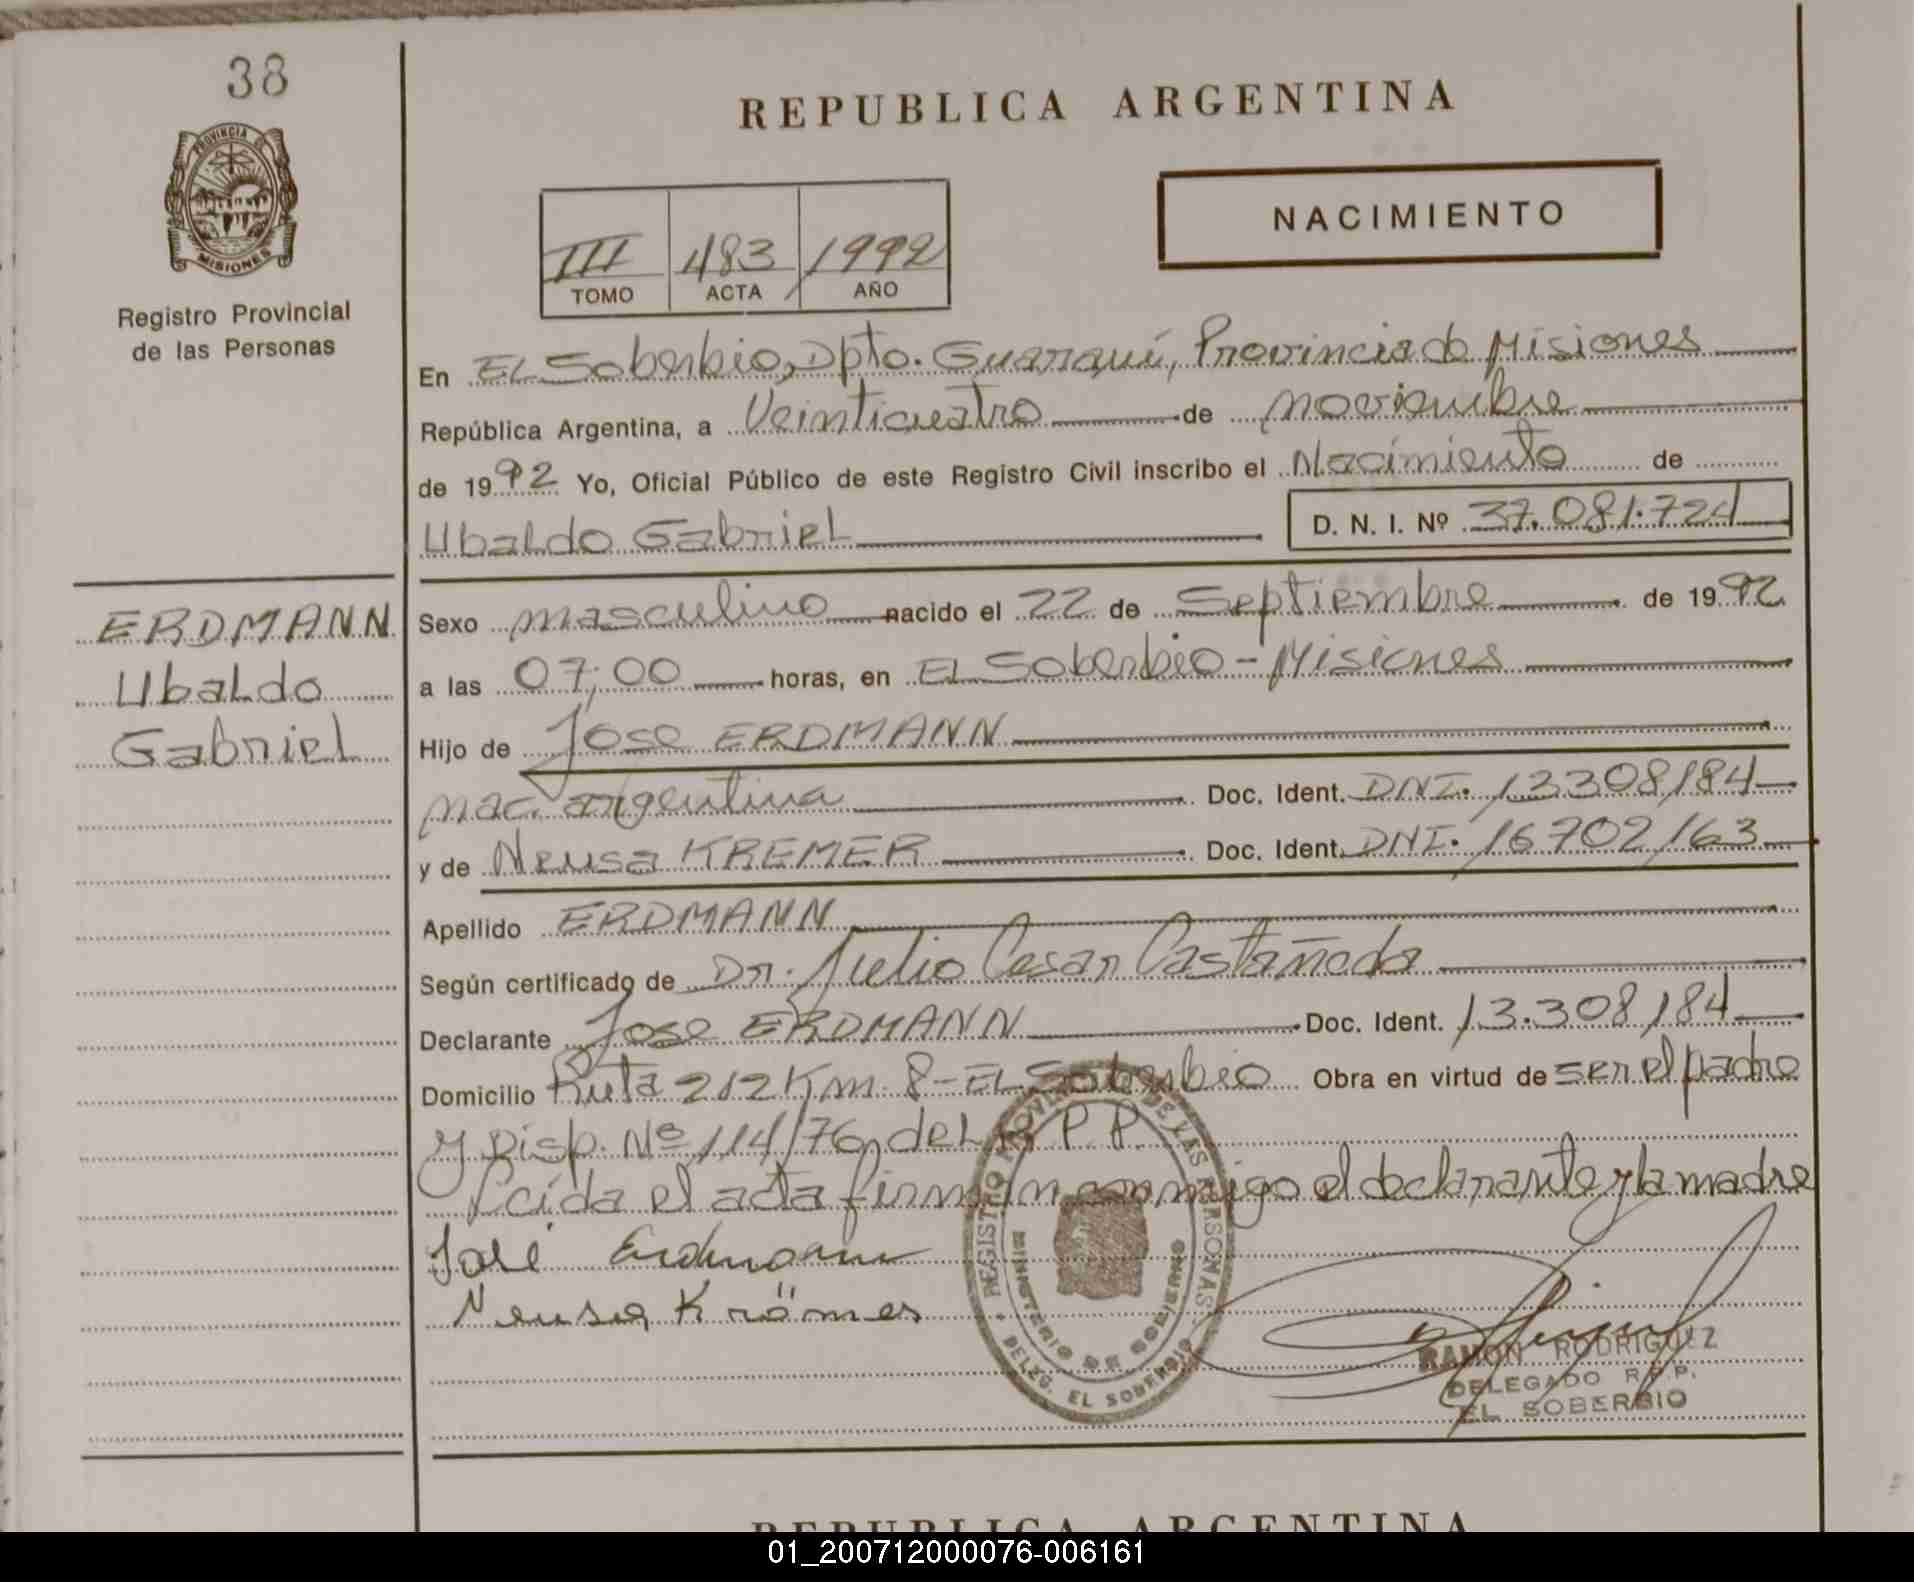 38
PROVINCIA DE
MISIONES
Registro Provincial
de las Personas
REPUBLICA ARGENTINA
III 483 1992
TOMO ACTA AÑO
NACIMIENTO
En EL Soberbio, Dpto. Guaraní, Provincia de Misiones
República Argentina, a Veinticuatro de noviembre
de 1992 Yo, Oficial Público de este Registro Civil inscribo el Nacimiento de
Ubaldo Gabriel D. N. I. Nº 37.081.724
ERDMANN
Ubaldo
Gabriel
Sexo masculino nacido el 22 de Septiembre de 1992
a las 07,00 horas, en EL Soberbio - Misiones
Hijo de Jose ERDMANN
nac. argentina Doc. Ident. DNI. 13308184
y de Neusa KREMER Doc. Ident. DNI. 16702163
Apellido ERDMANN
Según certificado de Dr. Julio Cesar Castañeda
Declarante Jose ERDMANN Doc. Ident. 13.308184
Domicilio Ruta 212 Km. 8 - EL Soberbio Obra en virtud de ser el padre
y Disp. Nº 114/76, del R P P.
Leida el acta firman conmigo el declarante y la madre
José Erdmann
Neusa Krämer
REGISTRO PROVINCIAL DE LAS PERSONAS
MINISTERIO DE GOBIERNO
DELEG. EL SOBERBIO
RAMON RODRIGUEZ
DELEGADO R.P.P.
EL SOBERBIO
REPUBLICA ARGENTINA
01_200712000076-006161